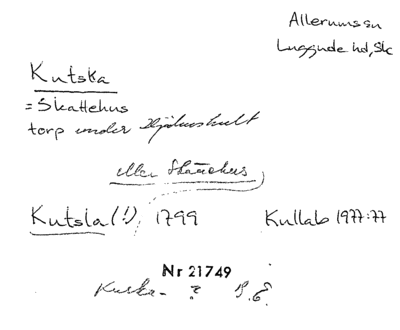 Allerums sn
Luggude hd, Sk
Kutska
= Skattehus
torp under Hjälmshult
eller
Kutsla (!) 1799 Kullab 1977:77
Nr 21749
Kuska - ? B.E.